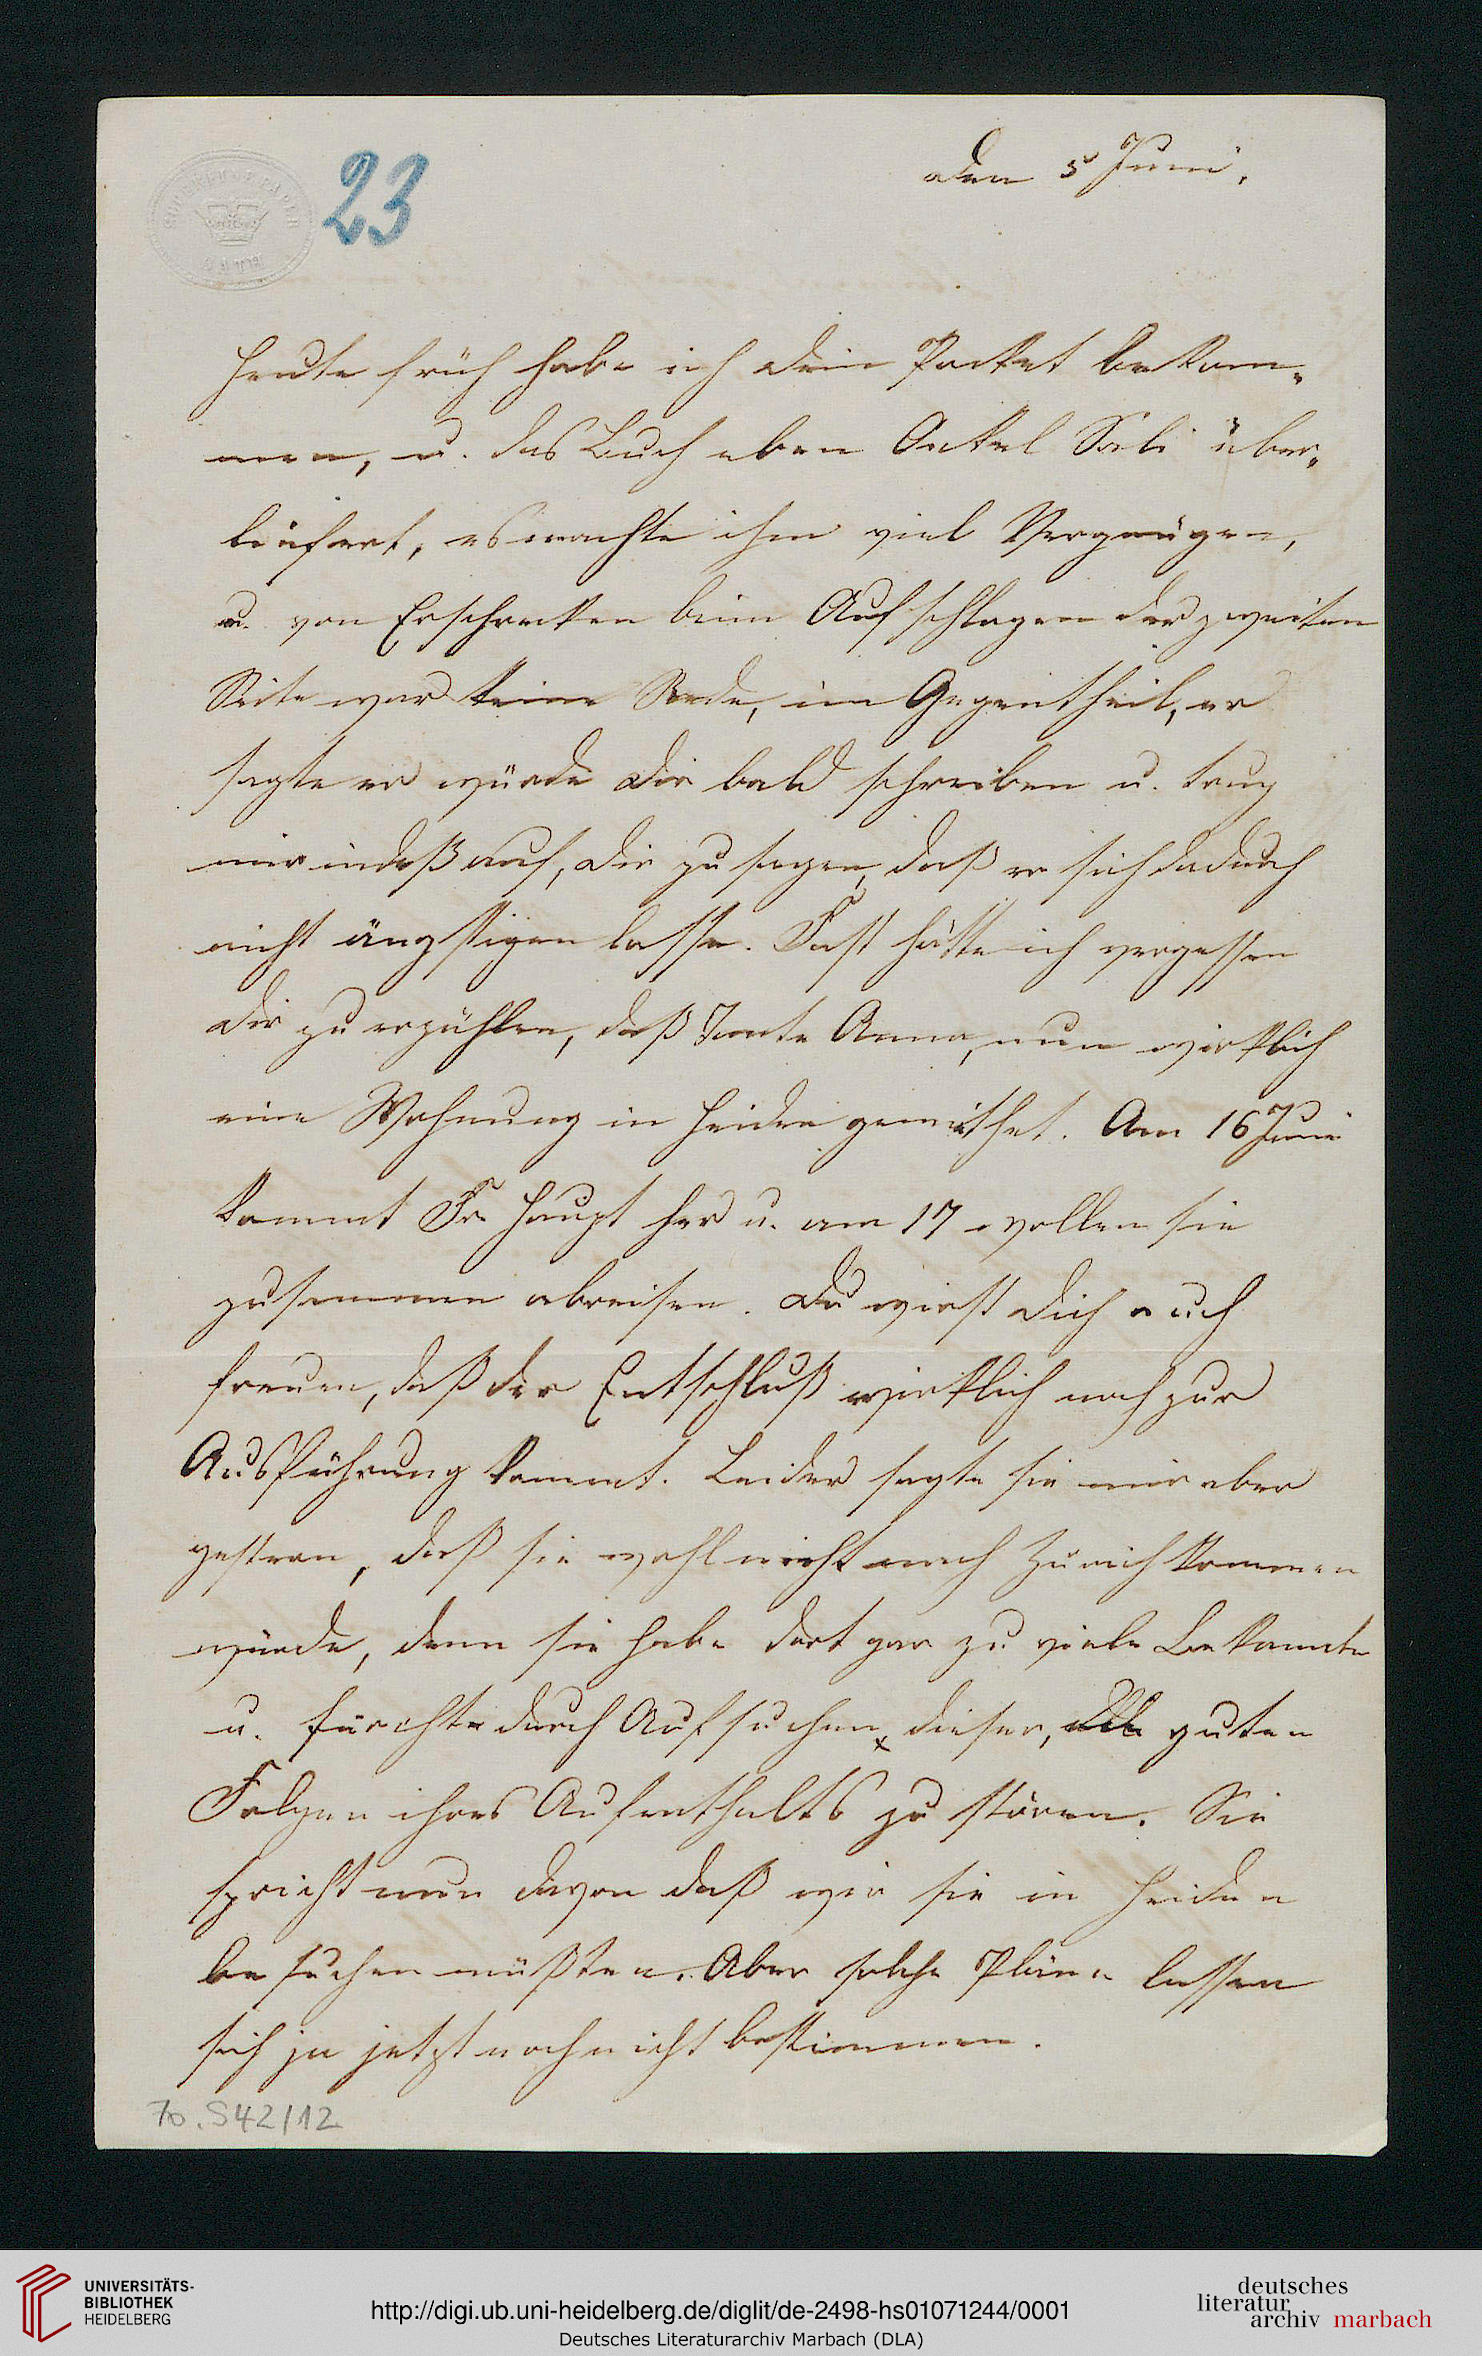 23
den 5 Juni.
Heute früh habe ich dein Packet bekom-
men, u. das Buch eben Onkel Sali über-
liefert, es machte ihm viel Vergnügen,
u. von Erschrecken beim Aufschlagen der zweiten
Seite war keine Rede, im Gegentheil, er
sagte er würde dir bald schreiben u. trug
mir indeß auf, dir zu sagen, daß er sich dadurch
nicht ängstigen lasse. Fast hätte ich vergessen
dir zu erzählen, daß Tante Anna, nun wirklich
eine Wohnung in Heiden gemiethet. Am 16 Juni
kommt Fr. Haupt her u. am 17 wollen sie
zusammen abreisen. Du wirst dich auch
freuen, daß der Entschluß wirklich noch zur
Ausführung kommt. Leider sagte sie mir aber
gestern, daß sie wohl nicht nach Zürich kommen
würde, denn sie habe dort gar zu viele Bekannte
u. fürchte durch Aufsuchen dieser, die guten
Folgen ihres Aufenthalts zu stören. Sie
spricht nun davon daß wir sie in Heiden
besuchen müßten. Aber solche Pläne lassen
sich ja jetzt noch nicht bestimmen.
70.542/12
UNIVERSITÄTS-
BIBLIOTHEK
HEIDELBERG
http://digi.ub.uni-heidelberg.de/diglit/de-2498-hs01071244/0001
Deutsches Literaturarchiv Marbach (DLA)
deutsches
literatur
archiv marbach